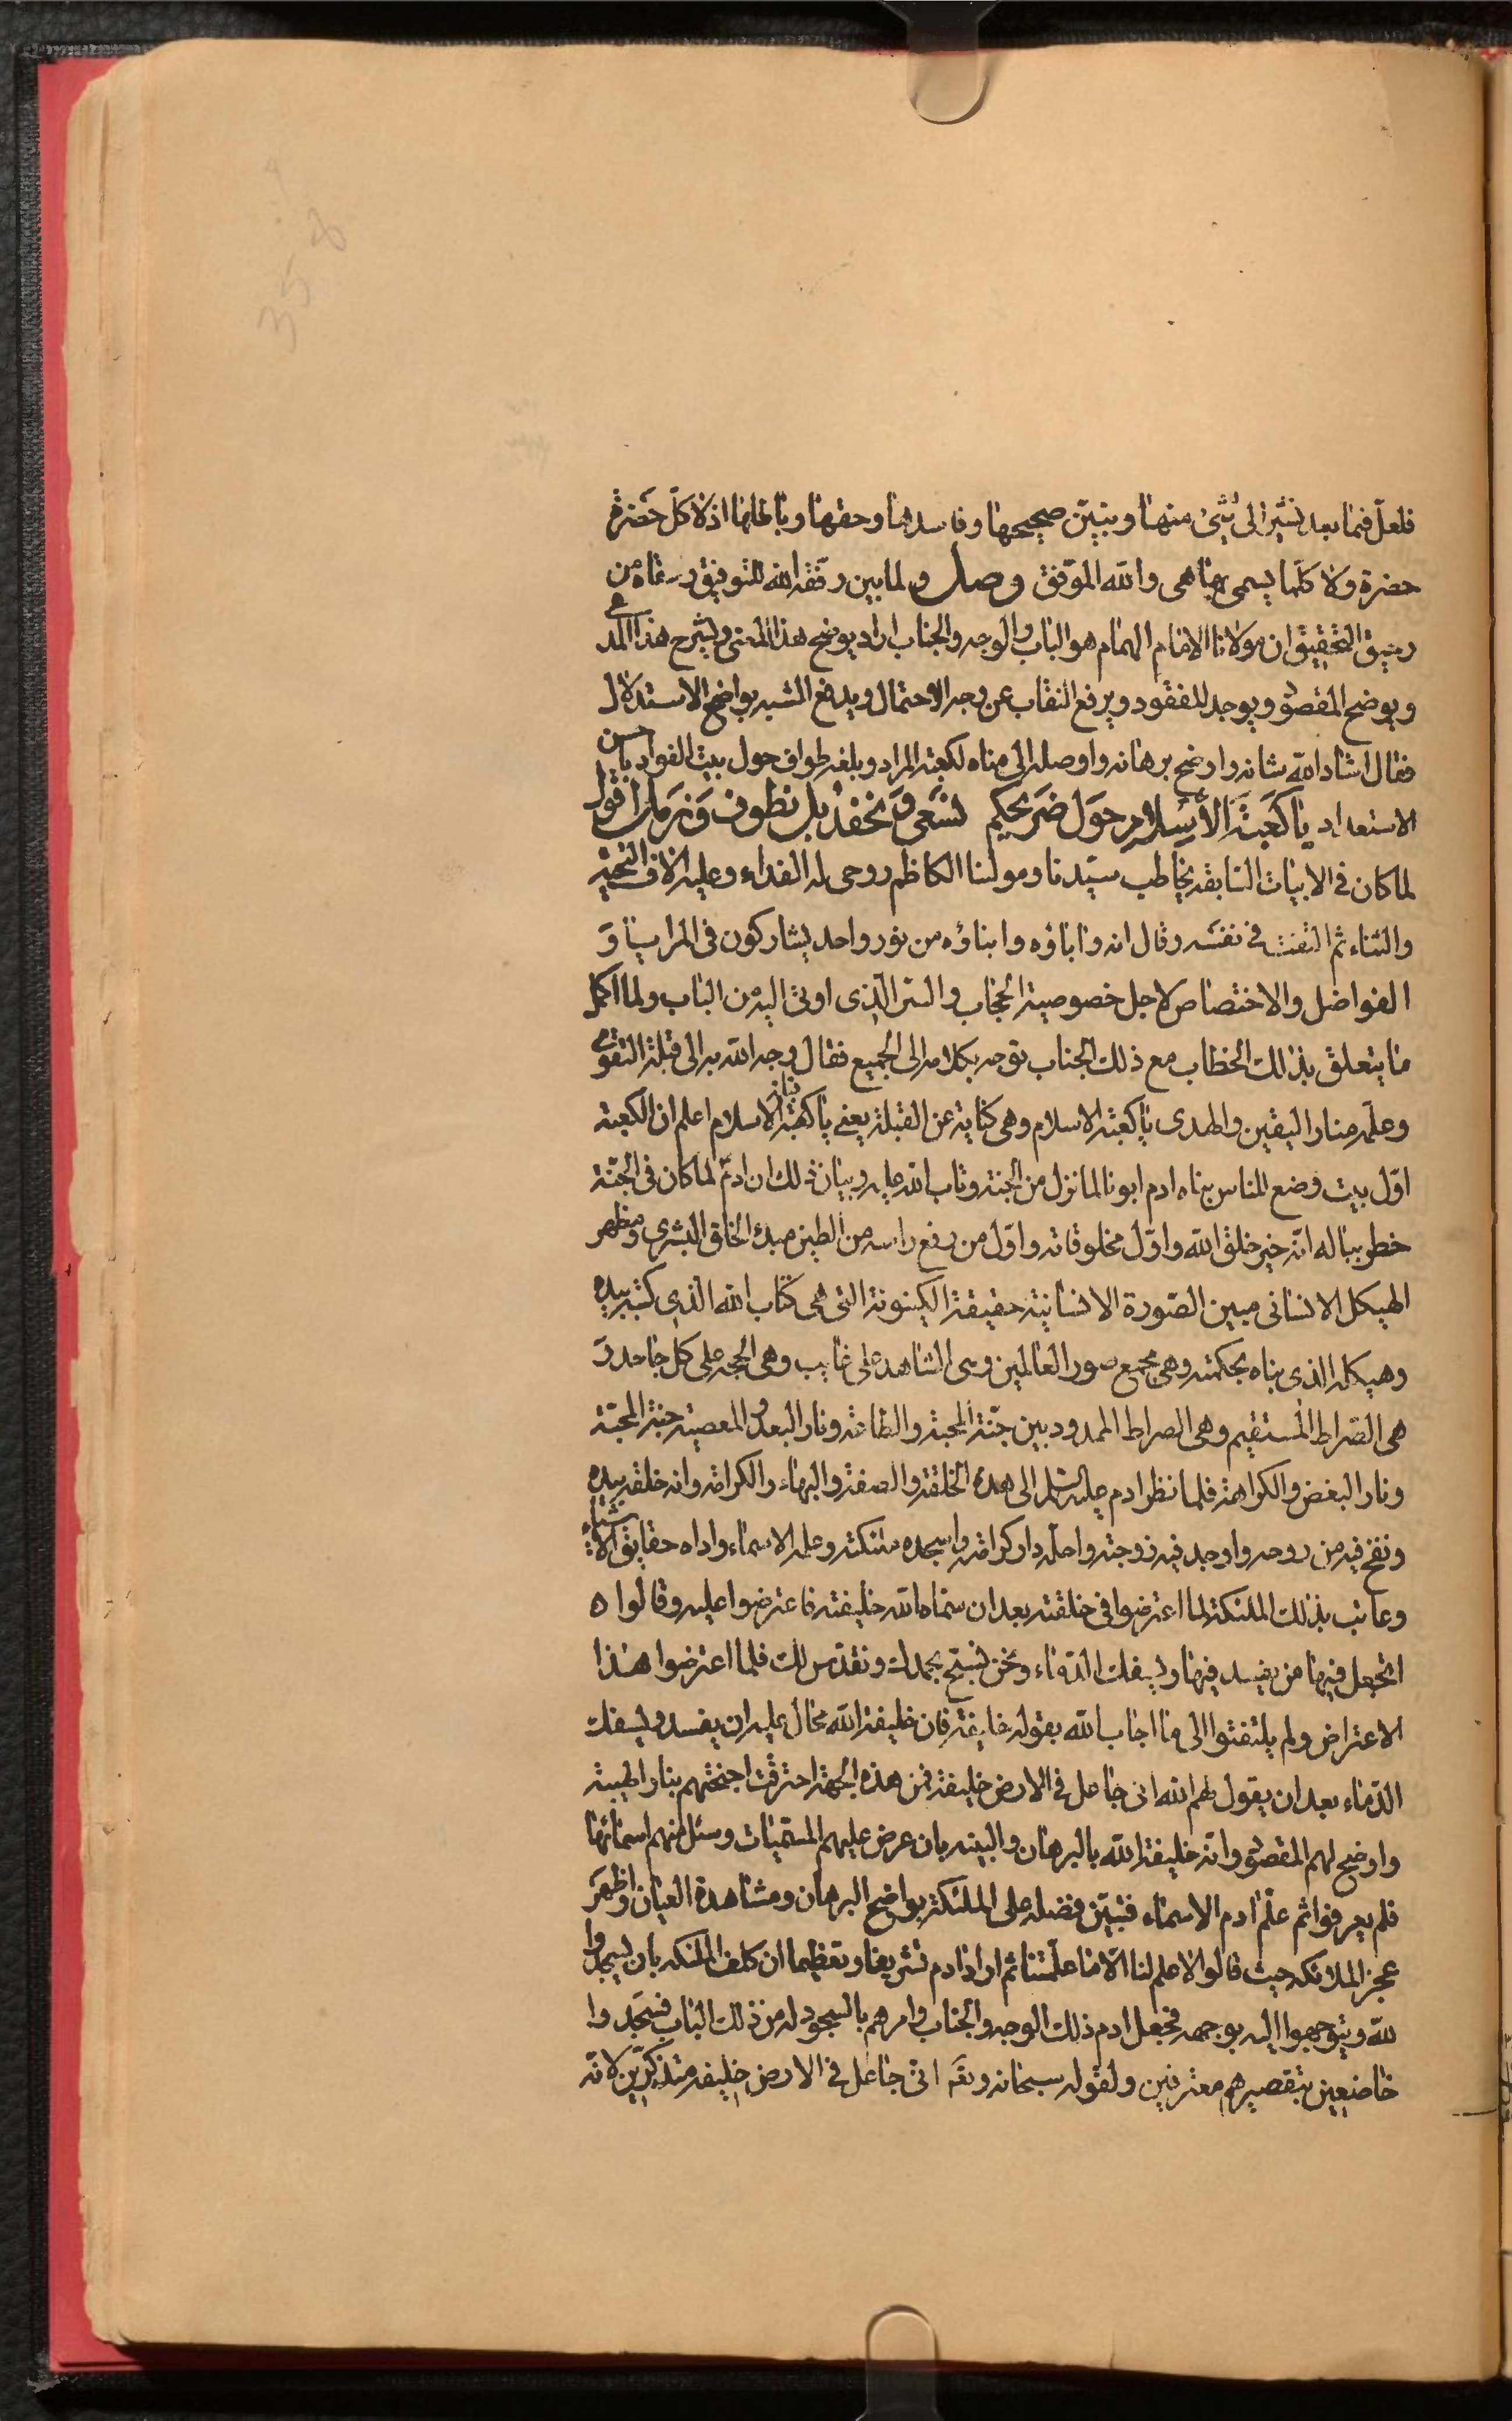 فلعل فيما بعد نشير الى شيئ منها ونبين صحيحها وفاسدها وحقها وباطلها اذ لا كل خضرة
حضرة ولا كلما يسمى بها هى والله الموفق وصل ولما بين وفقه الله للتوفيق وسقاه من
رحيق التحقيق ان مولانا الامام الهمام هو الباب والوجه والجناب اراد يوضح هذا المعنى ويشرح هذا المدعى
ويوضح المقصود ويوجد المفقود ويرفع النقاب عن وجه الاحتمال ويدفع الشبه بواضح الاستدلال
فقال اشاد الله شانه واوضح برهانه واوصله الى مناه لكعبة المراد وبلغه طواف حول بيت الفواد باحسن
الاستعداد يَا كَعبَةَ الأسلامِ حَولَ ضَريحكم نَسعَى وَنَحفدُ بل نطوف وَنَرمل اقول
لما كان فى الابيات السابقة يخاطب سيدنا ومولنا الكاظم روحى له الفداء وعليه الاف التحية
والثناء ثم التفت فى نفسه وقال انه واباؤه وابناؤه من نور واحد يشاركون فى المزايا و
الفواضل والاختصاص لاجل خصوصية الحجاب والستر الذى اوتى اليه من الباب ولما اكمل
ما يتعلق بذلك الخطاب مع ذلك الجناب توجه بكلامه الى الجميع فقال وجه الله به الى قبلة التقوى
وعلمه منار اليقين والهدى يا كعبة الاسلام وهى كناية عن القبلة يعنى يا كعبة الاسلام اعلم ان الكعبة
اول بيت وضع للناس بناه ادم ابونا لما نزل من الجنة وتاب الله عليه وبيان ذلك ان ادم لما كان فى الجنة
خطر بباله انه خير خلق الله واول مخلوقاته واول من رفع راسه من الطين مبدء الخلق البشرى ومظهر
الهيكل الانسانى مبين الصورة الانسانية حقيقة الكينونة التى هى كتاب الله الذى كتبه بيده
وهيكله الذى بناه بحكمته وهى مجمع صور العالمين وهى الشاهد على غايب وهى الحجة على كل جاحد و
هى الصراط المستقيم وهى الصراط الممدود بين جنة المحبة والطاعة ونار البعد والمعصية جنة المحبة
ونار البغض والكراهة فلما نظر ادم عليه السلم الى هذه الخلقة والصفة والبهاء والكرامة وانه خلقه بيده
ونفخ فيه من روحه واوجد فيه زوجته واحله دار كرامته واسجده ملئكته وعلمه الاسماء واراه حقايق الاشياء
وعاتب بذلك الملئكة لما اعترضوا فى خلقته بعد ان سماه الله خليفته فاعترضوا عليه وقالوا
اتجعل فيها من يفسد فيها ويسفك الدماء ونحن نسبح بحمدك ونقدس لك فلما اعترضوا هذا
الاعتراض ولم يلتفتوا الى ما اجاب الله بقوله خليفة فان خليفة الله محال عليه ان يفسد ويسفك
الدماء بعد ان يقول لهم الله انى جاعل فى الارض خليفة فمن هذه الجهة احترقت اجنحتهم بنار الهيبة
واوضح لهم المقصود وانه خليفة الله بالبرهان والبينه بان عرض عليهم المسميات وسئل منهم اسمائها
فلم يعرفوا ثم علم ادم الاسماء فتبين فضله على الملئكة بواضح البرهان ومشاهدة العيان واظهر
عجز الملائكه حيث قالوا لا علم لنا الا ما علمتنا ثم اراد ادم تشريفا وتعظيما ان كلف الملئكه بان يسجدوا
لله ويتوجهوا اليه بوجهه فجعل ادم ذلك الوجه والجناب وامرهم بالسجود له من ذلك الباب فسجدوا
خاضعين بتقصيرهم معترفين ولقوله سبحانه وتعم انى جاعل فى الارض خليفه متذكرين لانه